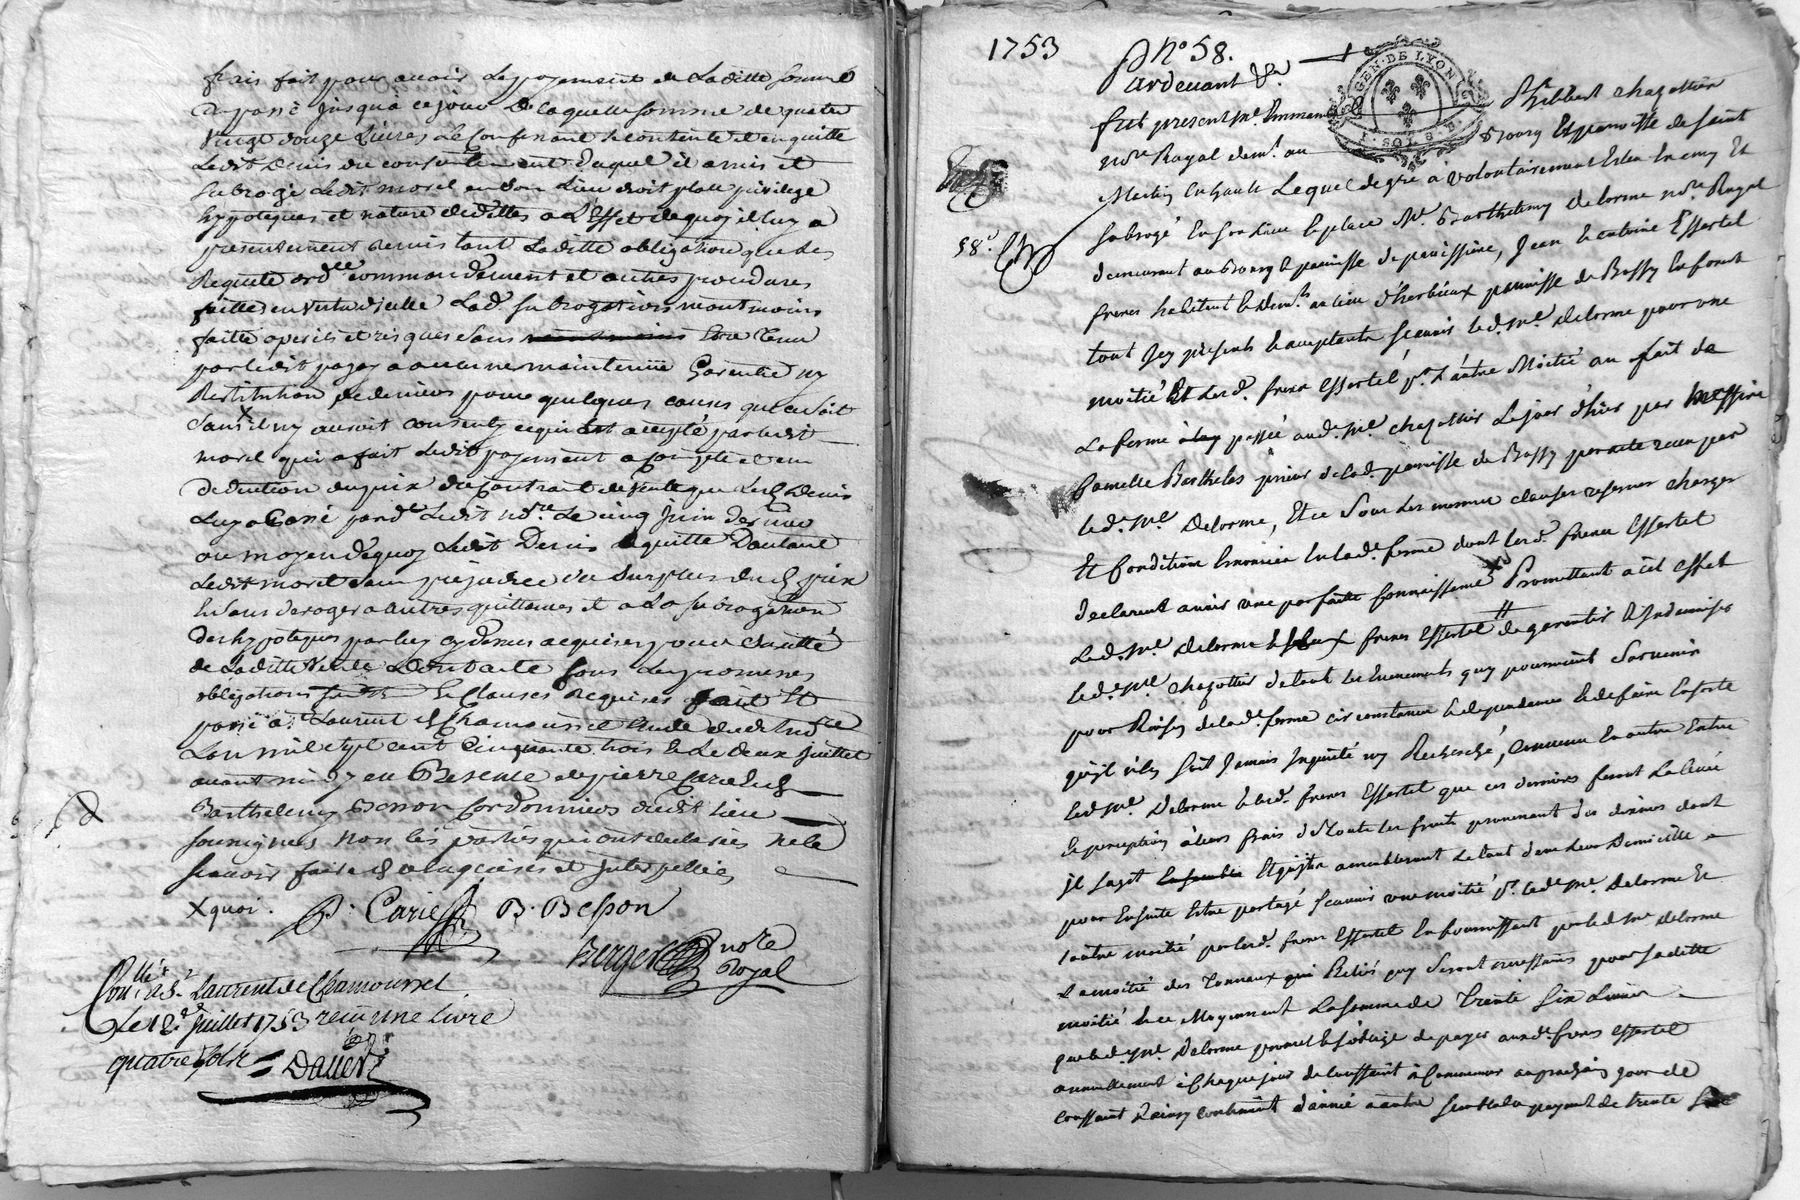 frais fait pour avoir le payement de laditte somme
du passé jusqu'à ce jour de laquelle somme de quatre
vingt douze livres le confessant se contente et en quitte
ledit Denis du consentement duquel il a mis et
subrogé ledit morel en son lieu droit place privilege
hypoteques et nature d'icelles a l'Effet de quoy il luy a
presentement remis tant laditte obligation que les
Requete ord.ce commandement et autres procedures
faittes en vertu d'icelle lad.e subrogation neantmoins
faitte a perils et risques sans etre tenu
par ledit a aucune maintenüe Garentie ny
Restitution de deniers pour quelques causes que ce soit
sans X il ny auroit consenty ce qui est accepté par ledit
morel qui a fait ledit payement a compte et en
deduction du prix du Contract de vente que led. Denis
luy a passé par d.t ledit no.re le cinq juin dernier
au moyen de quoy ledit Denis quitte D'autant
ledit morel sans prejudice du surplus dud. prix
et sans deroger a autres quittances et a la subrogation
des hypoteques par luy cy dessus acquises pour sureté
de laditte vente Dont acte sous les promesses
obligations et Clauses requises fait et
passé a S.t Laurent de Chamousset Etude dudit no.re
L'an mil sept cent cinquante trois et le deux juillet
avant midy en Presence de pierre Carie et de
Barthelemy Besson Cordonniers dudit lieu
soussignes non les parties qui ont declarées ne le
scavoir faire de ce enquises et interpellées
X quoi. P. Carie B. Besson
Berger no.re Royal
Con.llé à S.t Laurent de Chamousset
le 12.e Juillet 1753 reçu une livre
quatre sols = Dauer
1753 N.o 58.
GEN. DE LYON
Pardevant &a
fut present M.e Emmanuel Philibert chazottier
no.re Royal dem.t au Bourg Et paroisse de saint
Martin en haut Lequel de gré a volontairement Estre en cmy Et
58.e
subrogé En son Lieu et place M.e Barthelemy delorme no.re Royal
demeurant au Bourg et paroisse de , Jean et antoine Essertel
freres habitent et dem.ts au lieu d'herbieux paroisse de Bessy en forest
tout Icy présents et acceptants scavoir led. M.e delorme pour une
moitié Et lesd. freres Essertel p.r l'autre Moitié au fait de
La ferme passée aud. M.e chazottier Le jour d'hier par Messire
Camille Berthelas prieur de lad. paroisse de Bessy par acte recu par
led. M.e Delorme, Et ce sous les mesmes clauses reserves charges
Et Conditions Enoncées en lad.e ferme dont lesd. freres Essertel
declarent avoir une parfaitte connoissance Promettant à cet effet
led. M.e delorme et freres Essertel de garentir et Indemniser
led. M.e chazottier de tout les Evenements quy pourroient survenir
pour Raison de lad.e ferme circonstance et dependance et de faire en sorte
qu'il n'en soit Jamais Inquieté ny Recherché, convenu En outre Entre
led. M.e Delorme et lesd. freres Essertel que ces derniers feront La levée
et perception à leurs frais de toute les fruits provenant des dixmes dont
il sagit Et quils ameubleront Le tout dans leur Domicille
pour Ensuitte Estre partagé scavoir une moitié p.r led. M.e Delorme Et
l'autre moitié par lesd. freres Essertel En fournissant par led. M.e delorme
La moitié des Tonneaux Reliés quy seront necessaires pour sa ditte
moitié Et ce Moyennant La somme de Trente six Livres
que led. M.e Delorme promet et s'oblige de payer auxd. freres Essertel
annuellement à Chaque jour de toussaint à Commencer au prochain jour de
toussaint & ainsy continüer d'année a autre semblable payement de trente six